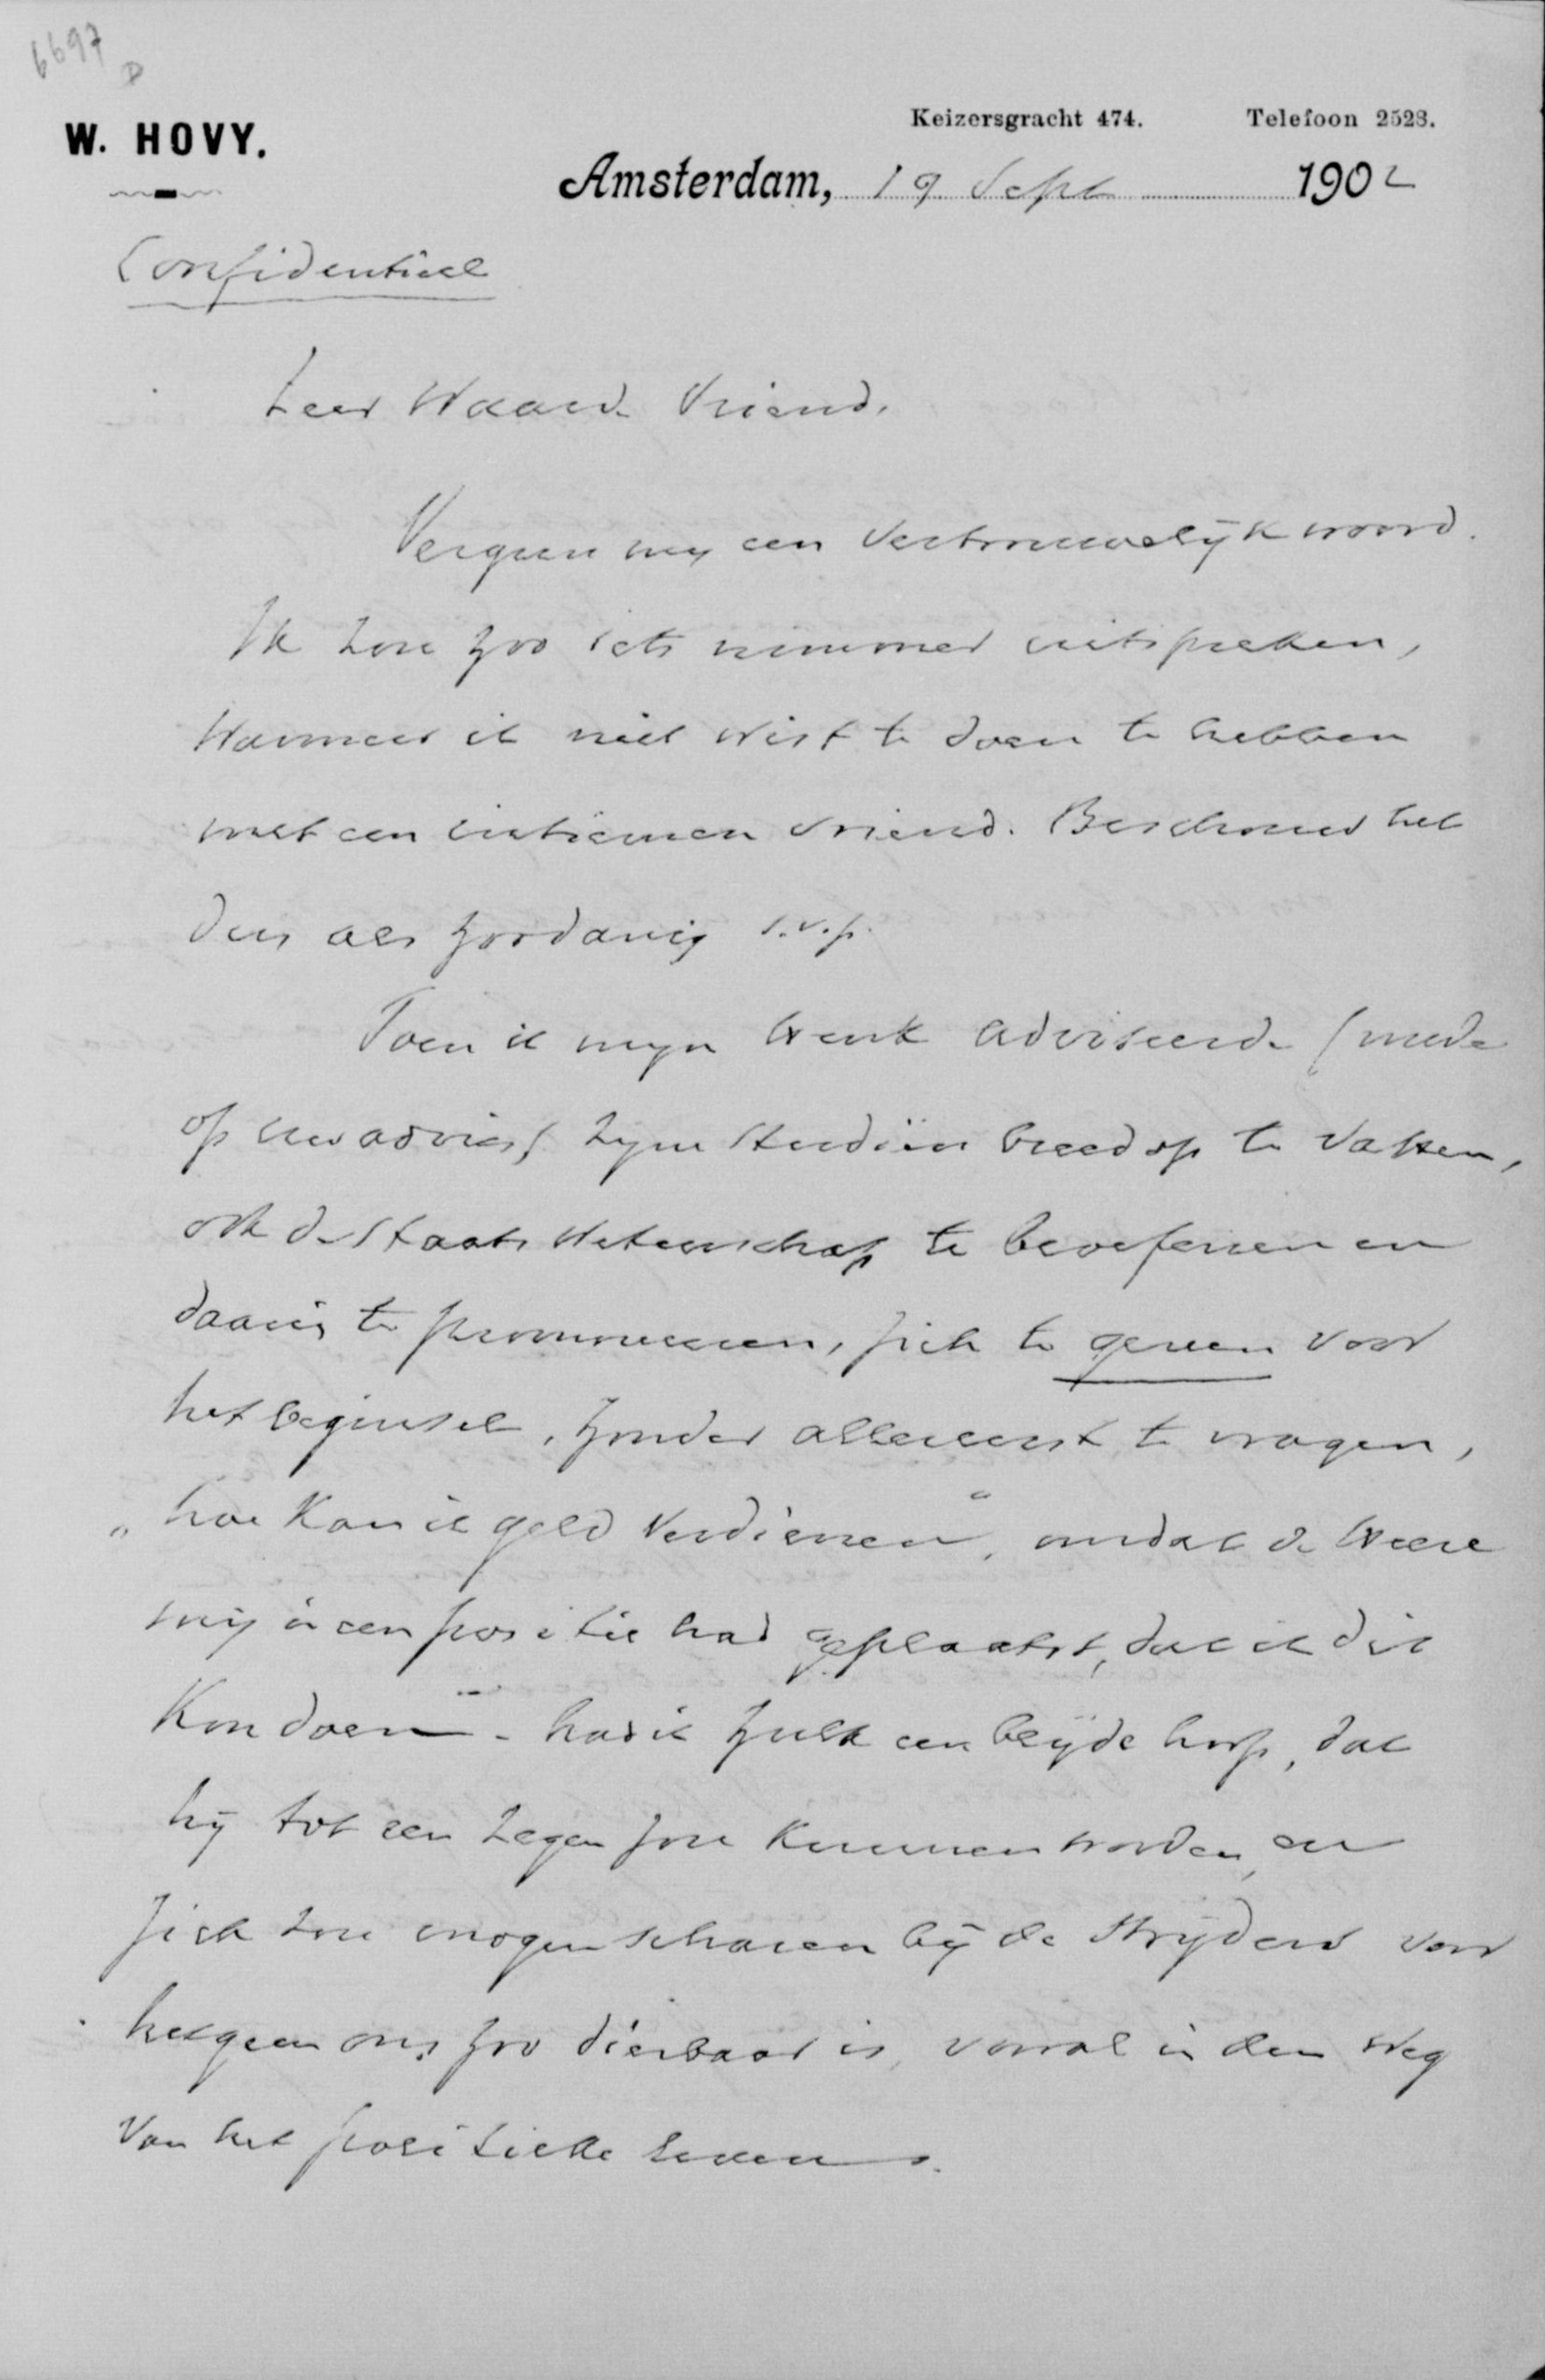 6697
D
W. HOVY.
Keizersgracht 474. Telefoon 2528.
Amsterdam, 19 Sept 1902
Confidentieel
Zeer Waarde Vriend.
Vergun mij een vertrouwelijk woord.
Ik zou zoo iets nimmer uitspreken,
Wanneer ik niet wist te doen te hebben
met een intiemen vriend. Beschouw het
dus als zoodanig s.v.p.
Toen ik mijn Henk adviseerde (mede
op uw advies) zijne studiën breed op te vatten,
ook de Staatswetenschap te beoefenen en
daarin te promoveeren, zich te geven voor
het beginsel, zonder allereerst te vragen,
"hoe kan ik geld verdienen", omdat de Heere
mij in een positie had geplaatst, dat ik dit
kon doen - had ik zulk een blijde hoop, dat
hij tot een zegen zou kunnen worden, en
zich zou mogen scharen bij de strijders voor
hetgeen ons zoo dierbaar is, vooral in den weg
van het politieke leven.